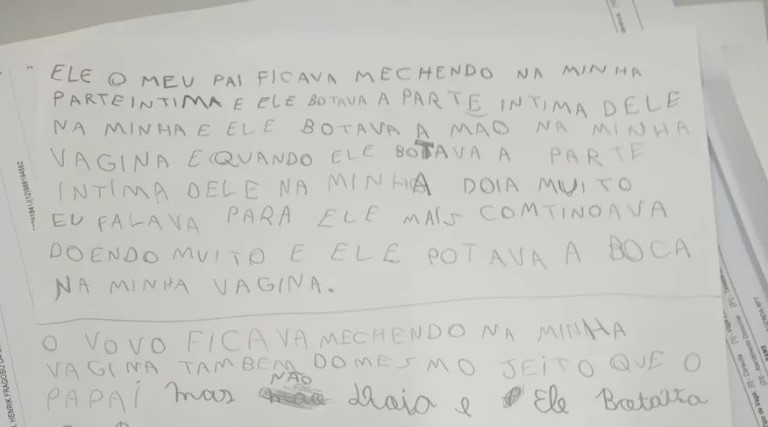 ELE O MEU PAI FICAVA MECHENDO NA MINHA
PARTEINTIMA E ELE BOTAVA A PARTE INTIMA DELE
NA MINHA E ELE BOTAVA A MAO NA MINHA
VAGINA E QUANDO ELE BOTAVA A PARTE
INTIMA DELE NA MINHA DOIA MUITO
EU FALAVA PARA ELE MAIS COMTINOAVA
DOENDO MUITO E ELE POTAVA A BOCA
NA MINHA VAGINA.
O VOVO FICAVA MECHENDO NA MINHA
VAGINA TAMBEM DO MESMO JEITO QUE O
PAPAI mas NÃO e Ele